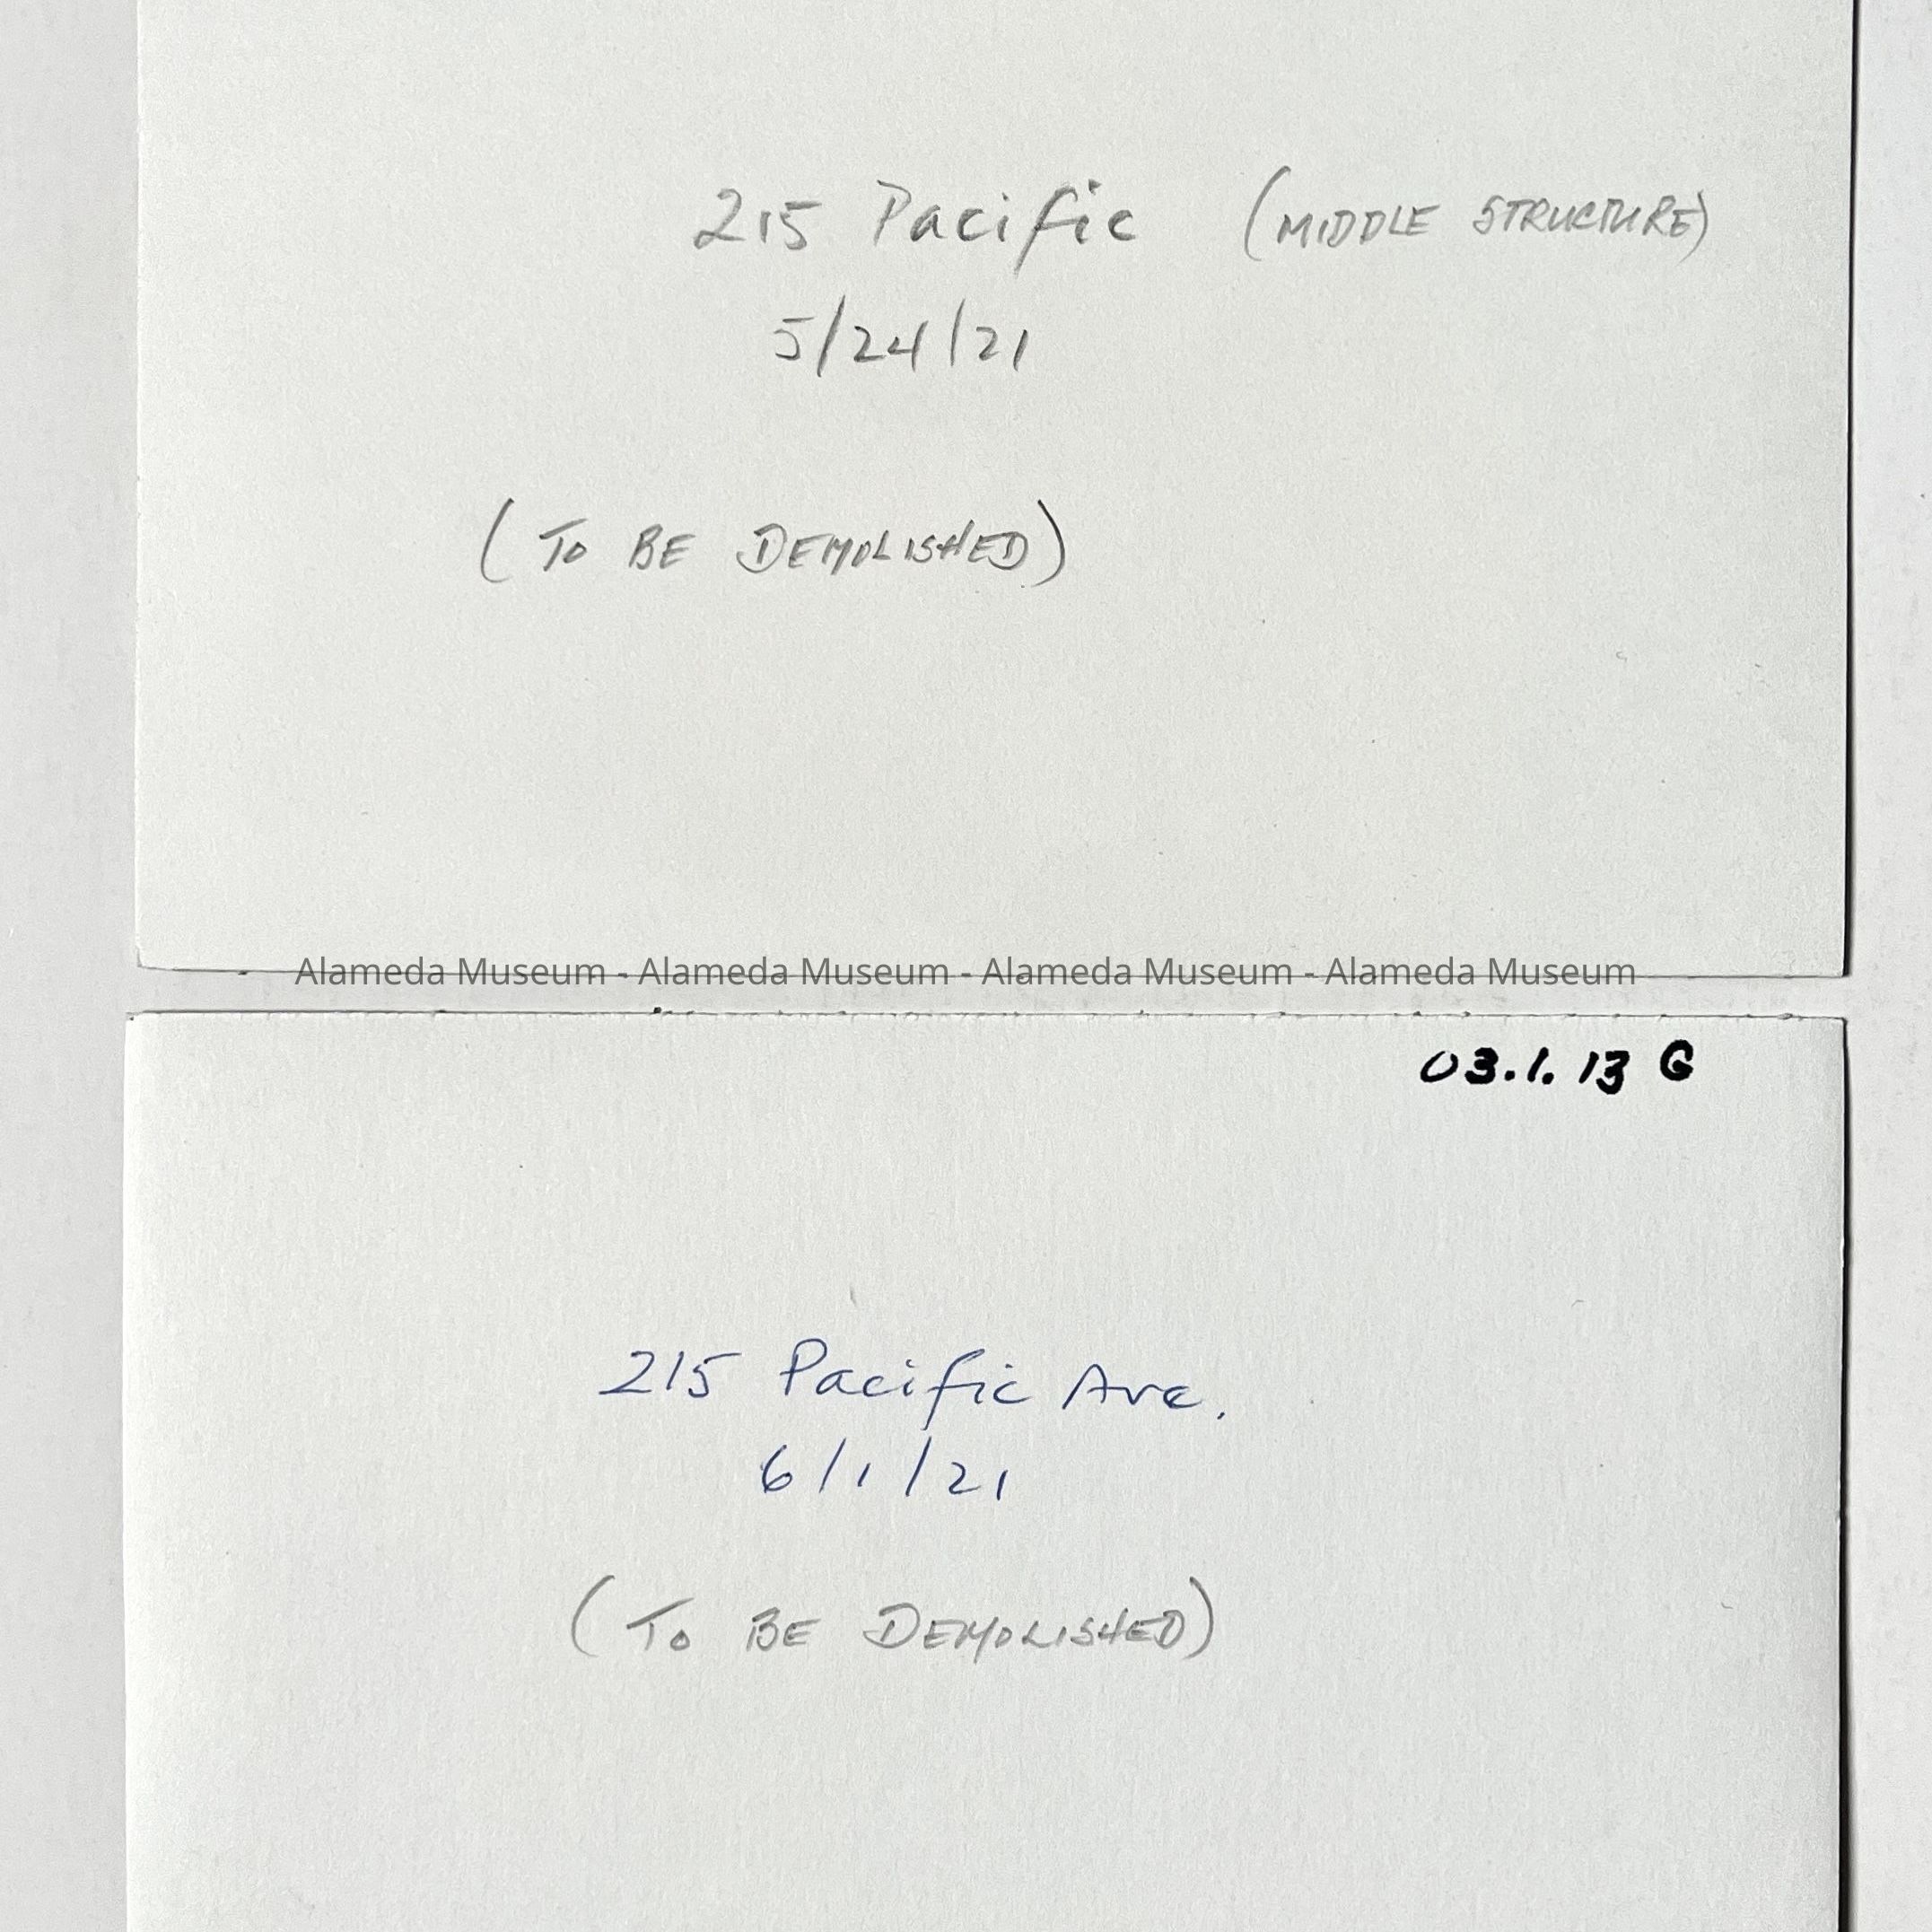 215 Pacific (MIDDLE STRUCTURE)
5/24/21
(To BE DEMOLISHED)
Alameda Museum - Alameda Museum - Alameda Museum - Alameda Museum
03.1.13 G
215 Pacific Ave.
6/1/21
(To BE DEMOLISHED)